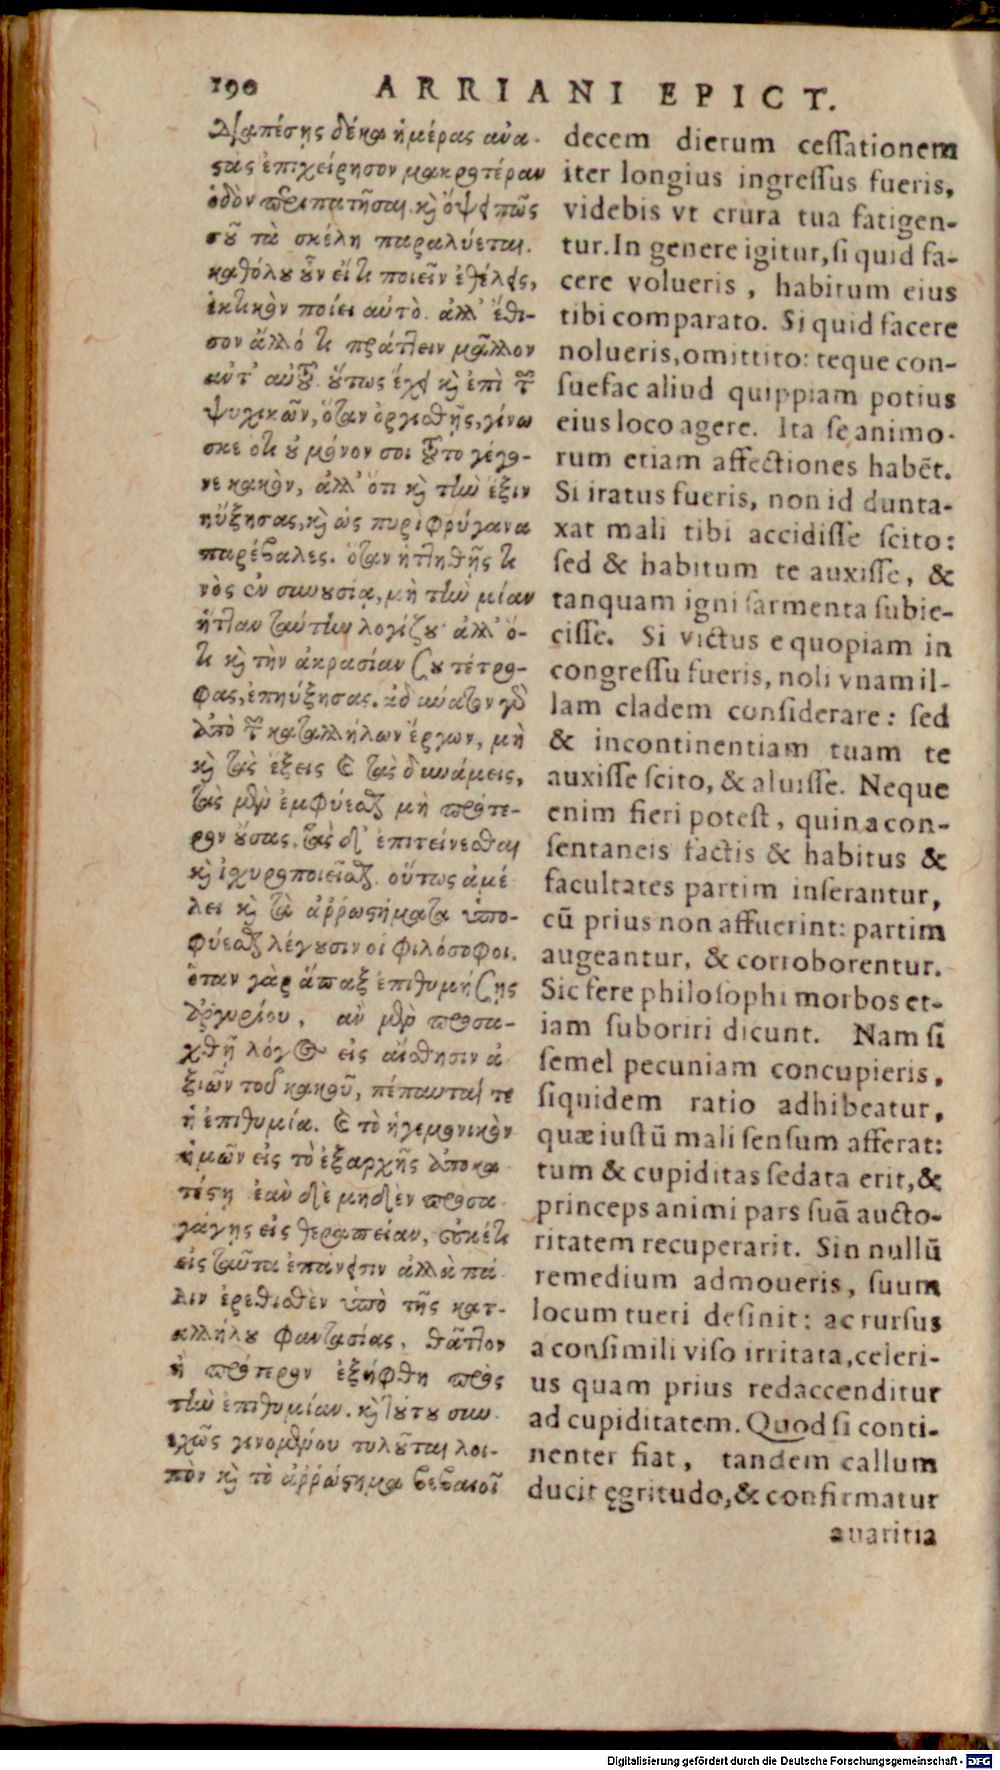 190 ARRIANI EPICT.
διαπέσῃς δέκα ἡμέρας ἀνα-
ϛὰς ἐπιχείρησον μακροτέραν
ὁδὸν περιπατῆσαι. καὶ ὄψει πῶς
σοῦ τὰ σκέλη παραλύεται.
καθόλου οὖν εἴ τι ποιεῖν ἐθέλεις,
ἑκτικὸν ποίει αὐτὸ. ἀλλ' ἔθι-
σον ἄλλό τι πράττειν μᾶλλον
αὐτ' αὐτοῦ. οὕτως ἔχει καὶ ἐπὶ τῶν
ψυχικῶν, ὅταν ὀργισθῇς, γίνω
σκε ὅτι οὐ μόνον σοι τοῦτο γέγο-
νε κακὸν, ἀλλ' ὅτι καὶ τὴν ἕξιν
ηὔξησας, καὶ ὡς πυρὶ φρύγανα
παρέβαλες. ὅταν ἡττηθῇς τι
νὸς ἐν συνουσίᾳ, μὴ τὴν μίαν
ἧτταν ταύτην λογίζου· ἀλλ' ὅ-
τι καὶ τὴν ἀκρασίαν σου τέτρο-
φας, ἐπηύξησας. ἀδύνατον γὰρ
ἀπὸ τῶν καταλλήλων ἔργων, μὴ
καὶ τὰς ἕξεις καὶ τὰς δυνάμεις,
τὰς μὲν ἐμφύεσθαι μὴ πρότε-
ρον οὔσας, τὰς δ' ἐπιτείνεσθαι
καὶ ἰσχυροποιεῖσθαι. οὕτως ἀμέ
λει καὶ τὰ ἀῤῥωϛήματα ὑπο-
φύεσθαι λέγουσιν οἱ φιλόσοφοι.
ὅταν γὰρ ἅπαξ ἐπιθυμήσῃς
ἀργυρίου, ἂν μὲν προσα-
χθῇ λόγος εἰς αἴσθησιν ἀ
ξιῶν τοῦ κακοῦ, πέπαυται τε
ἡ ἐπιθυμία. καὶ τὸ ἡγεμονικὸν
ἡμῶν εἰς τὸ ἐξαρχῆς ἀποκα
τέϛη ἐὰν δὲ μηδὲν προσα
γάγῃς εἰς θεραπείαν, οὐκέτι
εἰς ταῦτα ἐπάνεισιν ἀλλὰ πά
λιν ἐρεθισθὲν ὑπὸ τῆς κατ-
αλλήλου φαντασίας, θᾶττον
ἢ πρότερον ἐξήφθη πρὸς
τὴν ἐπιθυμίαν. καὶ τούτου συν
εχῶς γινομένου τυλοῦται λοι-
πὸν καὶ τὸ ἀῤῥώϛημα βεβαιοῖ
decem dierum ceſſationem
iter longius ingreſſus fueris,
videbis vt crura tua fatigen-
tur. In genere igitur, ſi quid fa-
cere volueris, habitum eius
tibi comparato. Si quid facere
nolueris, omittito: teque con-
ſuefac aliud quippiam potius
eius loco agere. Ita ſe animo-
rum etiam affectiones habēt.
Si iratus fueris, non id dunta-
xat mali tibi accidiſſe ſcito:
ſed & habitum te auxiſſe, &
tanquam igni ſarmenta ſubie-
ciſſe. Si victus e quopiam in
congreſſu fueris, noli vnam il-
lam cladem conſiderare: ſed
& incontinentiam tuam te
auxiſſe ſcito, & aluiſſe. Neque
enim fieri poteſt, quin a con-
ſentaneis factis & habitus &
facultates partim inſerantur,
cū prius non affuerint: partim
augeantur, & corroborentur.
Sic fere philoſophi morbos et-
iam ſuboriri dicunt. Nam ſi
ſemel pecuniam concupieris,
ſiquidem ratio adhibeatur,
quæ iuſtū mali ſenſum afferat:
tum & cupiditas ſedata erit, &
princeps animi pars ſuā aucto-
ritatem recuperarit. Sin nullū
remedium admoueris, ſuum
locum tueri deſinit: ac rurſus
a conſimili viſo irritata, celeri-
us quam prius redaccenditur
ad cupiditatem. Quod ſi conti-
nenter fiat, tandem callum
ducit ęgritudo, & confirmatur
auaritia
Digitalisierung gefördert durch die Deutsche Forschungsgemeinschaft - DFG